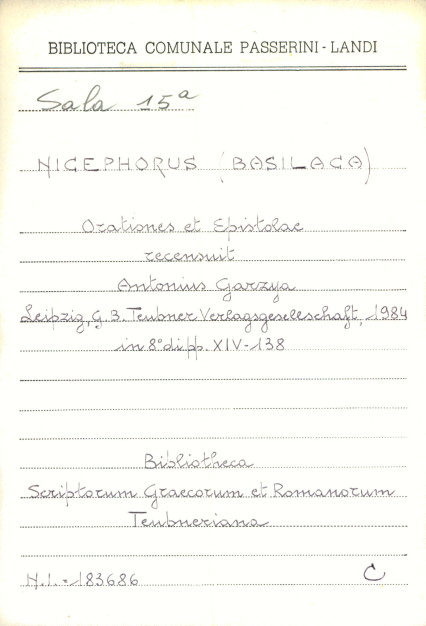 BIBLIOTECA COMUNALE PASSERINI - LANDI
Sala 15ª
NICEPHORUS (BASILACA)
Orationes et Epistolae
recensuit
Antonius Garzya
Leipzig, G. B. Teubner Verlagsgesellschaft, 1984
in 8° di pp. XIV-138
Bibliotheca
Scriptorum Graecorum et Romanorum
Teubneriana
N.I. = 183686 C